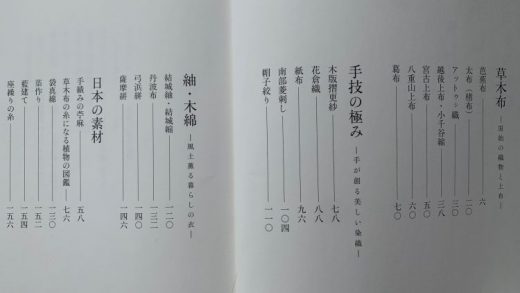 草木布 ―原始の織物と上布―
芭蕉布 六
太布（楮布） 二〇
アットゥㇱ織 三〇
越後上布・小千谷縮 三八
宮古上布 五〇
八重山上布 六〇
葛布 七〇
手技の極み ―手が創る美しい染織―
木版摺更紗 七八
花倉織 八八
紙布 九六
南部菱刺し 一〇四
帽子絞り 一一〇
紬・木綿 ―風土薫る暮らしの衣―
結城紬・結城縮 一二〇
丹波布 一三二
弓浜絣 一四〇
薩摩絣 一四六
日本の素材
手績みの苧麻 五八
草木布の糸になる植物の図鑑 七六
袋真綿 一三〇
藍作り 一五二
藍建て 一五四
座繰りの糸 一五六